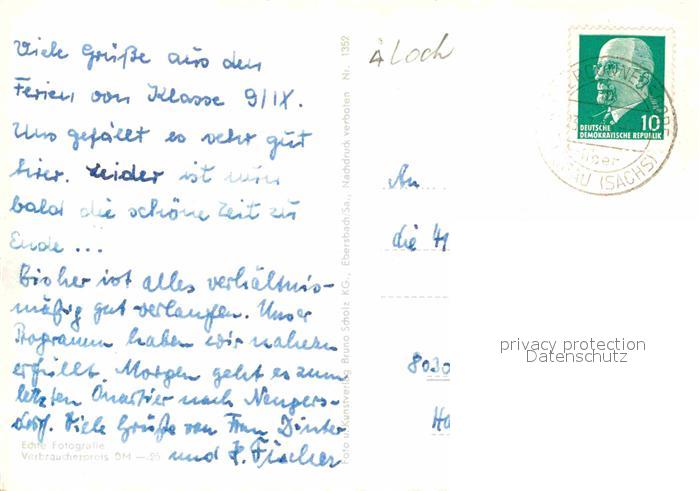 Viele Grüße aus den
Ferien von Klasse 9/IX.
Uns gefällt es sehr gut
hier. Leider ist nun
bald die schöne Zeit zu
Ende ...
Bisher ist alles verhältnis-
mäßig gut verlaufen. Unser
Programm haben wir nahezu
erfüllt. Morgen geht es zum
letzten Quartier nach Neugers-
dorf. Viele Grüße von Frau Dinter
und F. Fischer
Echte Fotografie
Verbraucherpreis DM —.25
Foto u. Kunstverlag Bruno Scholz KG., Ebersbach/Sa., Nachdruck verboten Nr. 1352
4 Loch
DEUTSCHE
DEMOKRATISCHE REPUBLIK
10
über
(SACHS)
An
die 41
8030
privacy protection
Datenschutz